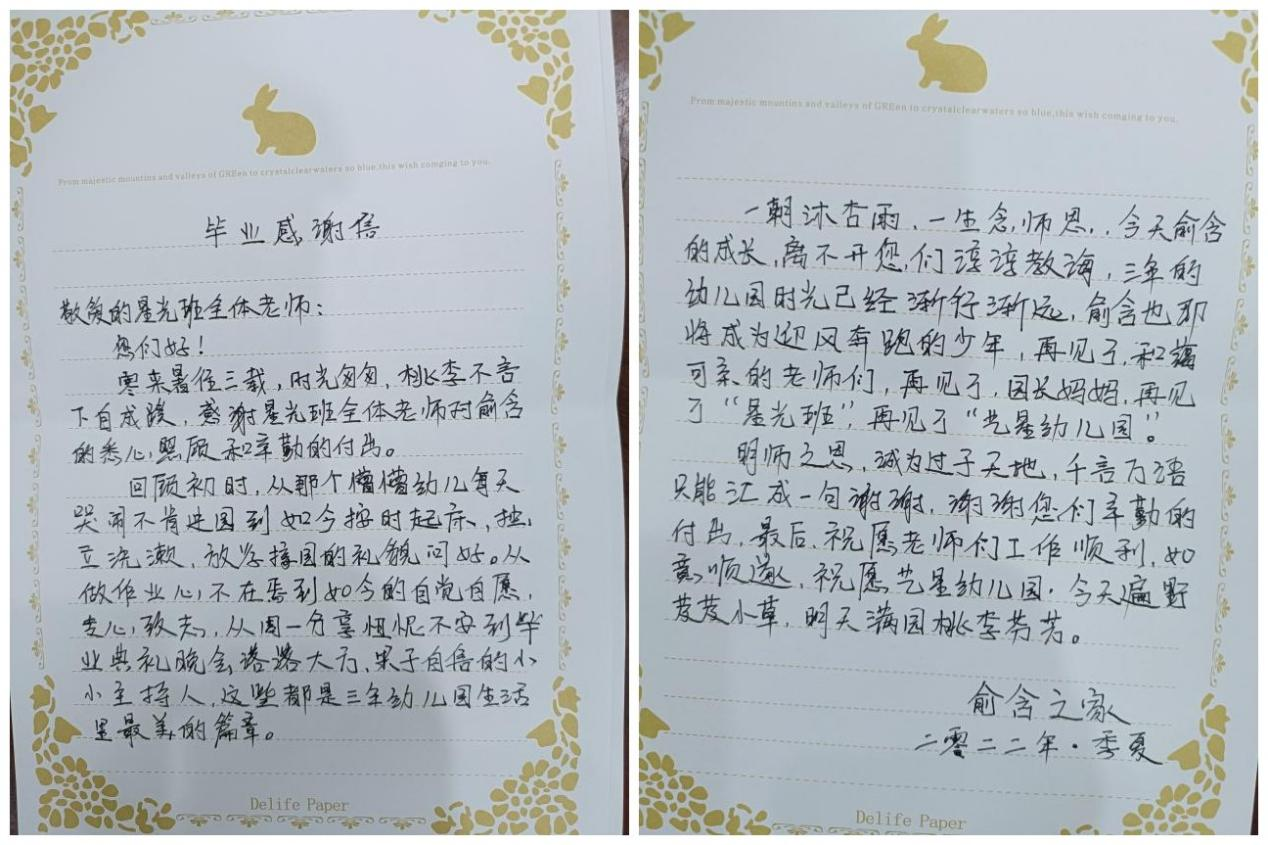 From majestic mountins and valleys of GREen to crystalclearwaters so blue,this wish comging to you.
毕业感谢信
敬爱的星光班全体老师：
您们好！
寒来暑往三载，时光匆匆，桃李不言
下自成蹊，感谢星光班全体老师对俞含
的悉心照顾和辛勤的付出。
回顾初时，从那个懵懂幼儿每天
哭闹不肯进园到如今按时起床，独
立洗漱，放学接园的礼貌问好。从
做作业心不在焉到如今的自觉自愿，
专心致志，从周一分享忸怩不安到毕
业典礼晚会落落大方，果子自信的小
小主持人，这些都是三年幼儿园生活
里最美的篇章。
Delife Paper
From majestic mountins and valleys of GREen to crystalclearwaters so blue,this wish comging to you.
一朝沐杏雨，一生念师恩，今天俞含
的成长，离不开您们淳淳教诲，三年的
幼儿园时光已经渐行渐远，俞含也即
将成为迎风奔跑的少年，再见了，和蔼
可亲的老师们，再见了，园长妈妈，再见
了“星光班”，再见了“艺星幼儿园”。
明师之恩，诚为过于天地，千言万语
只能汇成一句谢谢，谢谢您们辛勤的
付出，最后，祝愿老师们工作顺利，如
意顺遂，祝愿艺星幼儿园·今天遍野
芨芨小草，明天满园桃李芬芳。
俞含之家
二零二二年·季夏
Delife Paper